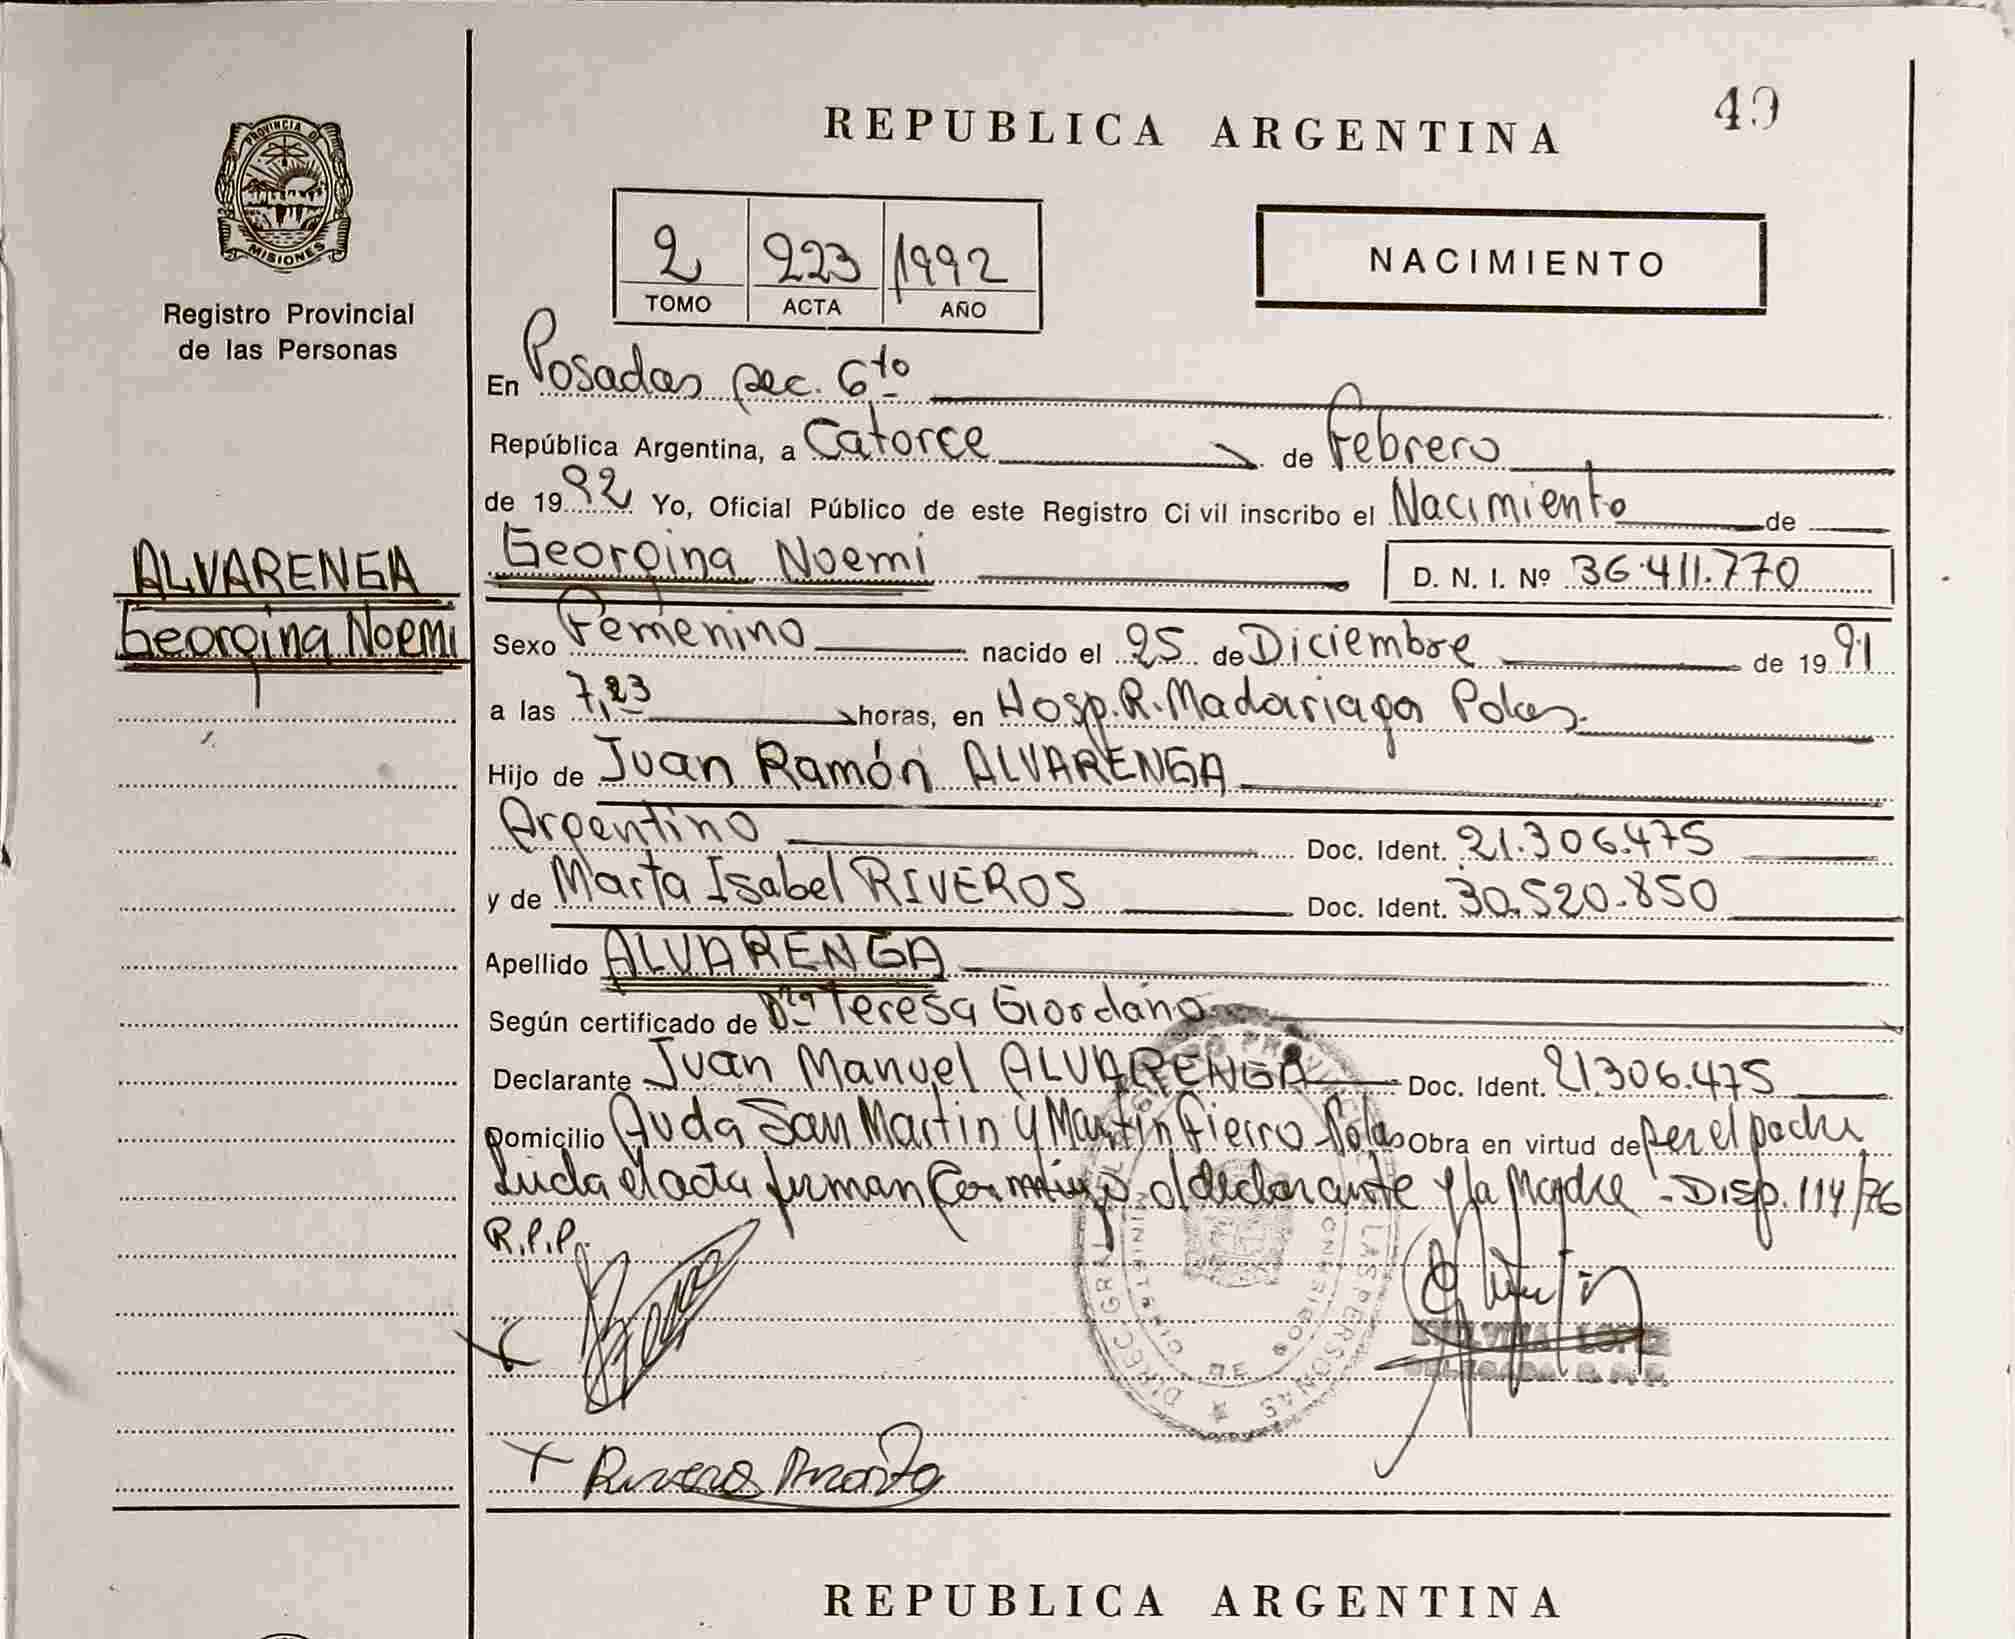 REPUBLICA ARGENTINA
49
PROVINCIA DE
MISIONES
Registro Provincial
de las Personas
2 223 1992
TOMO ACTA AÑO
NACIMIENTO
En Posadas sec. 6to
República Argentina, a Catorce de Febrero
de 1992 Yo, Oficial Público de este Registro Civil inscribo el Nacimiento de
ALVARENGA
Georgina Noemi
Georgina Noemi D. N. I. Nº 36.411.770
Sexo Femenino nacido el 25 de Diciembre de 1991
a las 7,23 horas, en Hosp. R. Madariaga Pdas.
Hijo de Juan Ramón ALVARENGA
Argentino Doc. Ident. 21.306.475
y de Marta Isabel RIVEROS Doc. Ident. 30.520.850
Apellido ALVARENGA
Según certificado de Dra Teresa Giordano
Declarante Juan Manuel ALVARENGA Doc. Ident. 21306.475
Domicilio Avda San Martin y Martin Fierro Pdas Obra en virtud de ser el padre
Leida el acta firman conmigo el declarante y la Madre - Disp. 114/76
R.P.P.
LAS PERSONAS
LOPEZ
REPUBLICA ARGENTINA